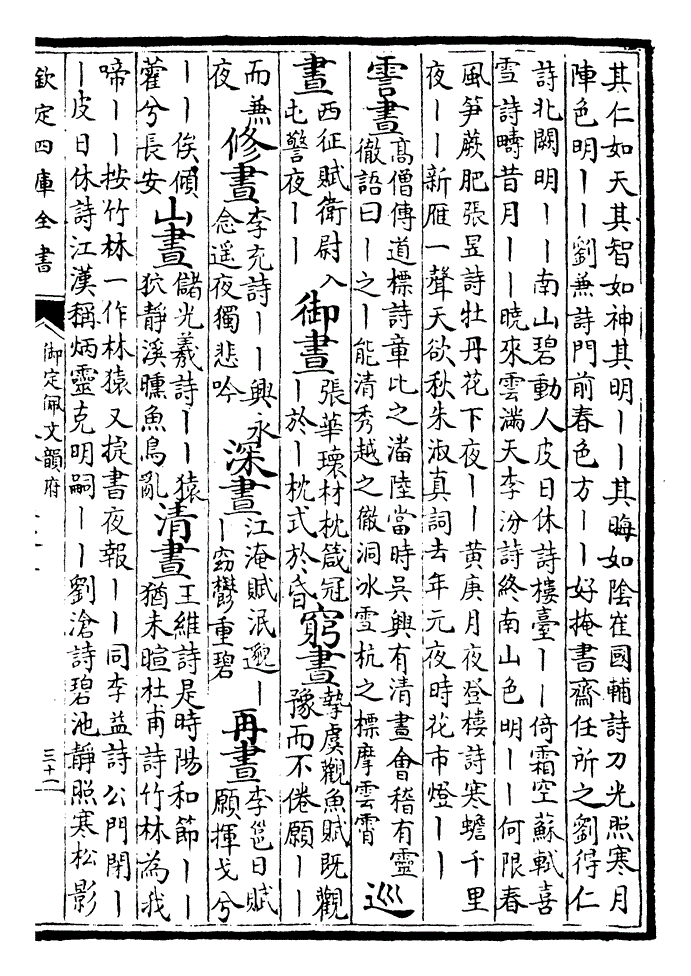 其仁如天其智如神其明丨丨其晦如陰崔國輔詩刀光照寒月
陣色明丨丨劉兼詩門前春色方丨丨好掩書齋任所之劉得仁
詩北闕明丨丨南山碧動人皮日休詩樓臺丨丨倚霜空蘇軾喜
雪詩疇昔月丨丨曉來雲滿天李汾詩終南山色明丨丨何限春
風笋蕨肥張昱詩牡丹花下夜丨丨黄庚月夜登樓詩寒蟾千里
夜丨丨新雁一聲天欲秋朱淑真詞去年元夜時花市燈丨丨
霅晝
髙僧傳道標詩章比之潘陸當時吳興有清晝會稽有靈
徹語曰丨之丨能清秀越之徹洞冰雪杭之標摩雲霄
巡
晝
西征賦衛尉入
屯警夜丨丨
御晝
張華瓌材枕箴冠
丨於丨枕式於昏
窮晝
摯虞觀魚賦既觀
豫而不倦願丨丨
而兼
夜
修晝
李充詩丨丨興永
念遥夜獨悲吟
深晝
江淹賦泯邈丨
丨窈鬱重碧
再晝
李邕日賦
願揮戈兮
丨丨俟傾
藿兮長安
山晝
儲光羲詩丨丨猿
狖靜溪曛魚鳥亂
清晝
王維詩是時陽和節丨丨
猶未暄杜甫詩竹林為我
啼丨丨按竹林一作林猿又捉書夜報丨丨同李益詩公門閉丨
丨皮日休詩江漢稱炳靈克明嗣丨丨劉滄詩碧池靜照寒松影
欽定四庫全書
御定佩文韻府
三十一